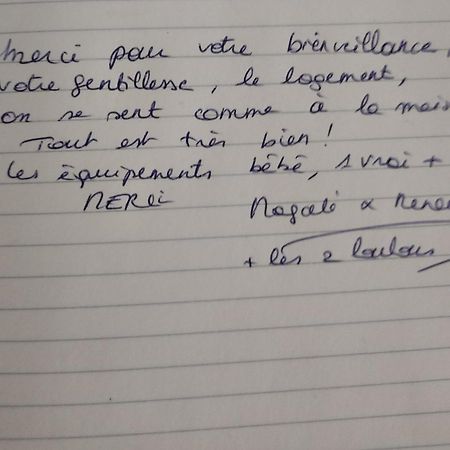 Merci pour votre bienveillance,
votre gentillesse, le logement,
on se sent comme à la mais
Tout est très bien !
Les équipements bébé, 1 vrai +
MERCI Magalé &
+ les 2 loulous